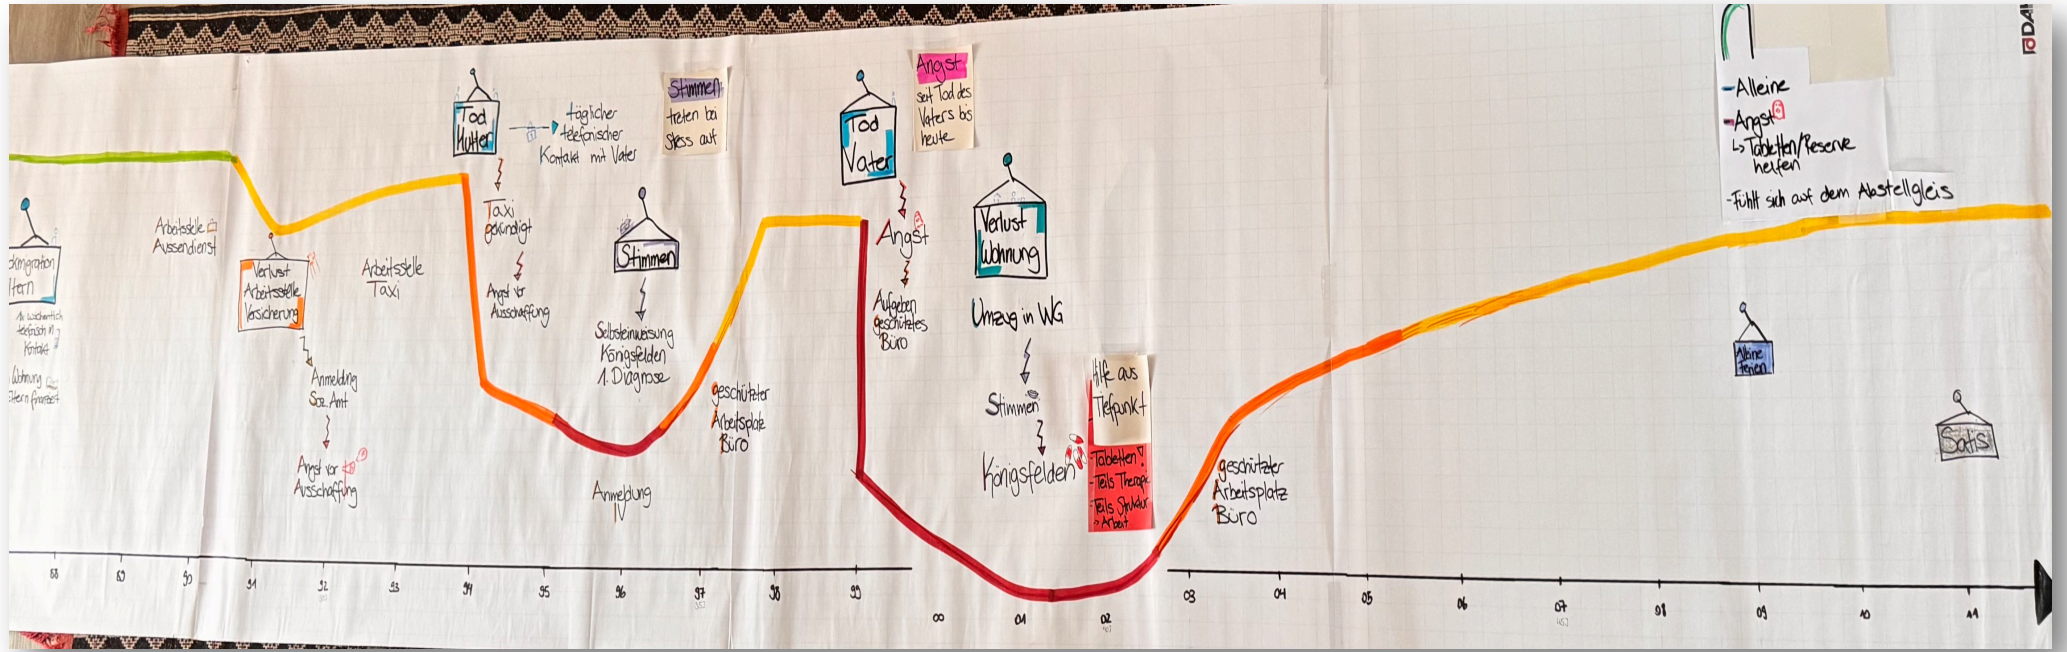 Arbeitsstelle
Aussendienst
Verlust
Arbeitsstelle
Versicherung
Anmeldung
Soz. Amt
Angst vor
Ausschaffung
Arbeitsstelle
Taxi
Tod
Mutter
täglicher
telefonischer
Kontakt mit Vater
Taxi
gekündigt
Angst vor
Ausschaffung
Stimmen
treten bei
Stress auf
Stimmen
Selbsteinweisung
Königsfelden
1. Diagnose
Anmeldung
IV
geschützter
Arbeitsplatz
Büro
Tod
Vater
Angst
seit Tod des
Vaters bis
heute
Angst
Aufgeben
geschütztes
Büro
Verlust
Wohnung
Umzug in WG
Stimmen
Königsfelden
Hilfe aus
Tiefpunkt
Tabletten!
- Teils Therapie
- Teils Struktur
Arbeit
geschützter
Arbeitsplatz
Büro
- Alleine
- Angst
↳ Tabletten/Reserve
helfen
- Fühlt sich auf dem Abstellgleis
Alleine
Satis
88 89 90 91 92 93 94 95 96 97 98 99 00 01 02 03 04 05 06 07 08 09 10 11